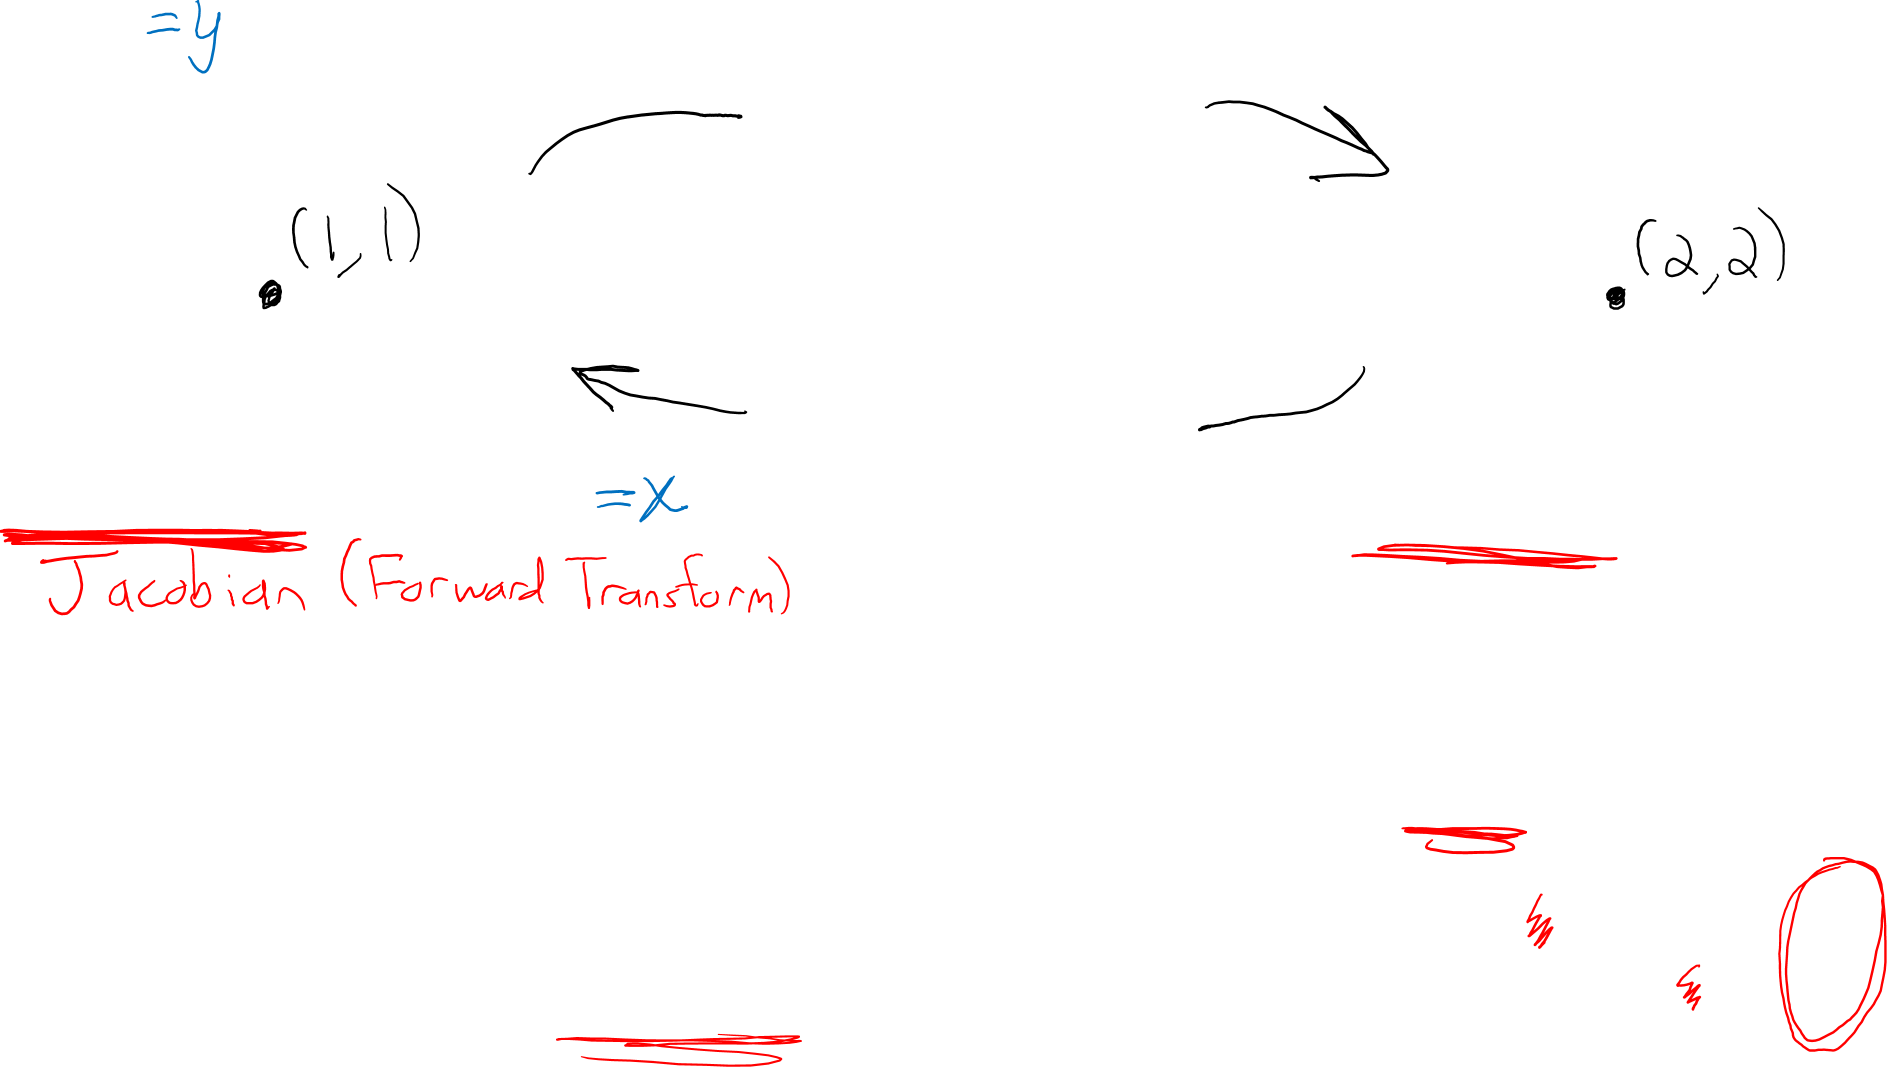 =y
(1,1)
(2,2)
=x
Jacobian (Forward Transform)